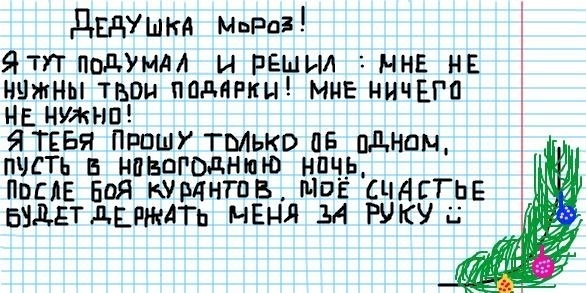 ДЕДУШКА МОРОЗ!
Я ТУТ ПОДУМАЛ И РЕШИЛ : МНЕ НЕ
НУЖНЫ ТВОИ ПОДАРКИ! МНЕ НИЧЕГО
НЕ НУЖНО!
Я ТЕБЯ ПРОШУ ТОЛЬКО ОБ ОДНОМ,
ПУСТЬ В НОВОГОДНЮЮ НОЧЬ,
ПОСЛЕ БОЯ КУРАНТОВ, МОЁ СЧАСТЬЕ
БУДЕТ ДЕРЖАТЬ МЕНЯ ЗА РУКУ